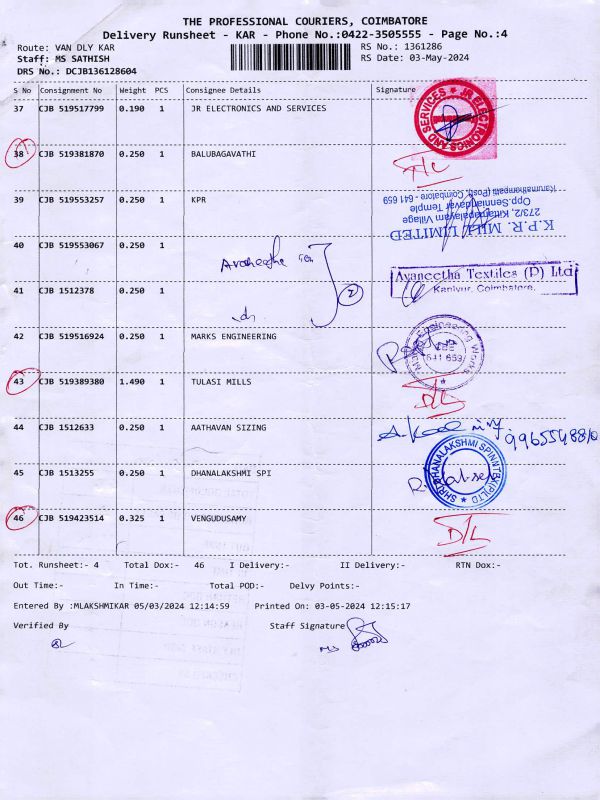 THE PROFESSIONAL COURIERS, COIMBATORE
Delivery Runsheet - KAR - Phone No.:0422-3505555 - Page No.:4
Route: VAN DLY KAR
RS No.: 1361286
Staff: MS SATHISH
RS Date: 03-May-2024
DRS No.: DCJB136128604
S No Consignment No Weight PCS Consignee Details Signature
37 CJB 519517799 0.190 1 JR ELECTRONICS AND SERVICES
JR ELECTRONICS AND SERVICES
38 CJB 519381870 0.250 1 BALUBAGAVATHI
39 CJB 519553257 0.250 1 KPR
K.P.R. MILL LIMITED
273/2, Kittampalayam Village
Opp.Senniandavar Temple
Karumathampatti (Post), Coimbatore - 641 659
40 CJB 519553067 0.250 1
Avaneetha Textiles (P) Ltd
Kaniyur, Coimbatore.
41 CJB 1512378 0.250 1
2
42 CJB 519516924 0.250 1 MARKS ENGINEERING
Engineering Works
641 659
43 CJB 519389380 1.490 1 TULASI MILLS
D/L
44 CJB 1512633 0.250 1 AATHAVAN SIZING
45 CJB 1513255 0.250 1 DHANALAKSHMI SPI
46 CJB 519423514 0.325 1 VENGUDUSAMY
D/L
Tot. Runsheet:- 4 Total Dox:- 46 I Delivery:- II Delivery:- RTN Dox:-
Out Time:- In Time:- Total POD:- Delvy Points:-
Entered By :MLAKSHMIKAR 05/03/2024 12:14:59 Printed On: 03-05-2024 12:15:17
Verified By Staff Signature